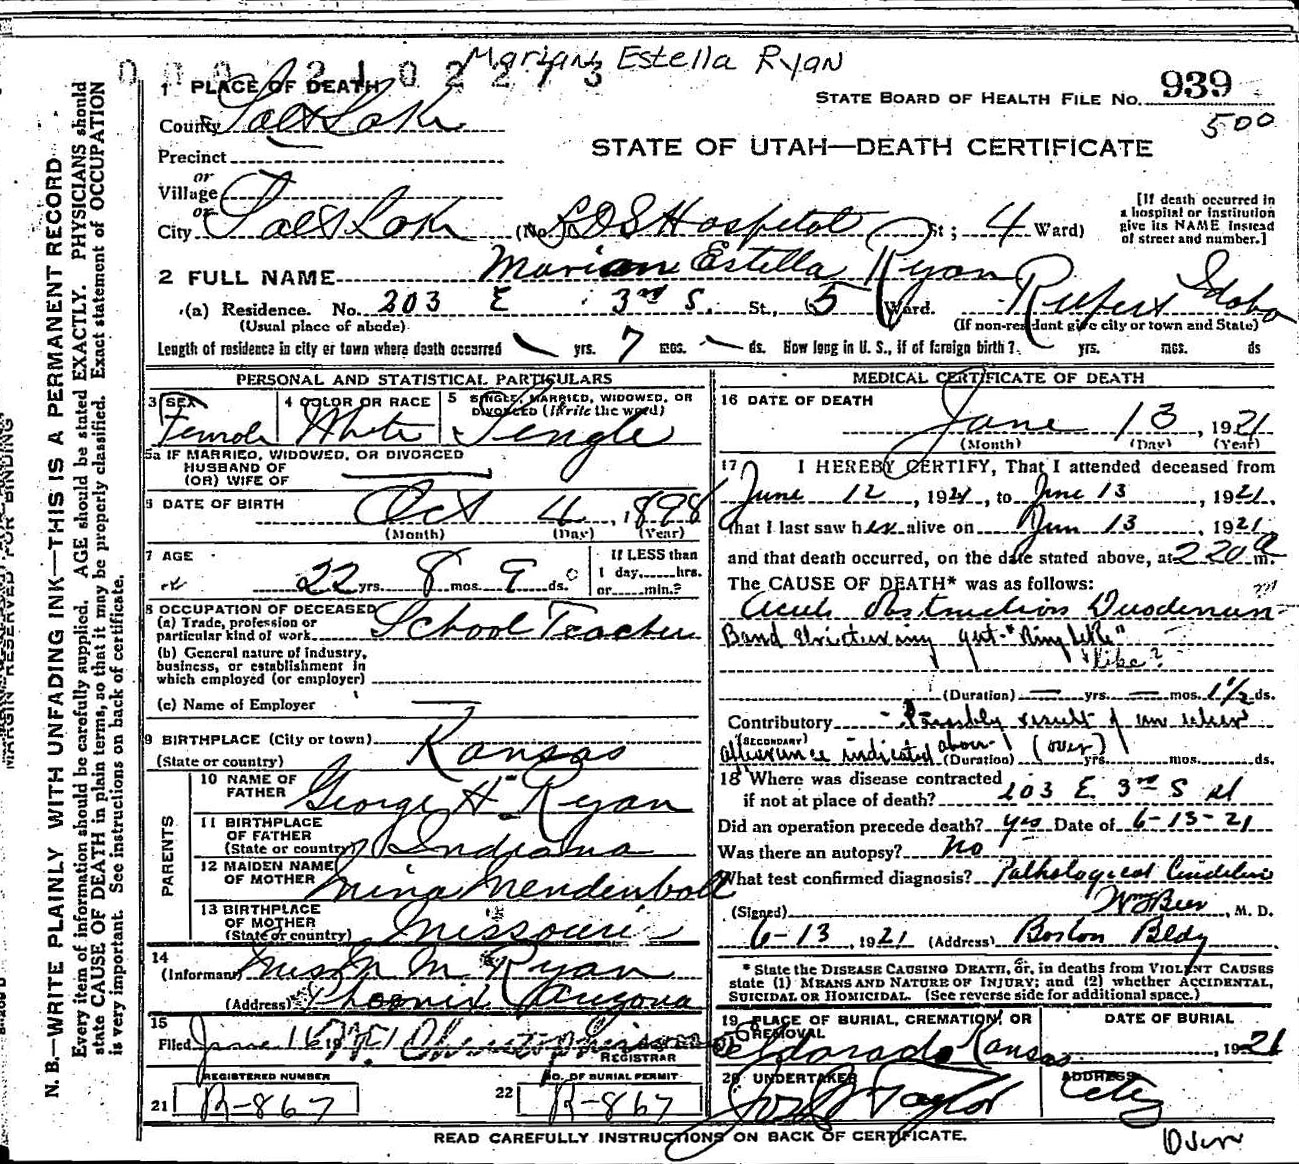 Marian Estella Ryan
0002102273
1 PLACE OF DEATH
STATE BOARD OF HEALTH FILE NO. 939
500
County Salt Lake
STATE OF UTAH—DEATH CERTIFICATE
Precinct
or
Village
or
City Salt Lake (No. LDS Hospital St; 4 Ward)
[If death occurred in a hospital or institution give its NAME instead of street and number.]
2 FULL NAME Marian Estella Ryan
(a) Residence. No. 203 E 3rd S. St., 5 Ward. Rupert Idaho
(Usual place of abode) (If non-resident give city or town and State)
Length of residence in city or town where death occurred — yrs. 7 mos. — ds. How long in U. S., if of foreign birth? yrs. mos. ds
PERSONAL AND STATISTICAL PARTICULARS
3 SEX Female
4 COLOR OR RACE White
5 SINGLE, MARRIED, WIDOWED, OR DIVORCED (Write the word) Single
5a IF MARRIED, WIDOWED, OR DIVORCED
HUSBAND OF
(OR) WIFE OF
6 DATE OF BIRTH Oct 4, 1898
(Month) (Day) (Year)
7 AGE 22 yrs. 8 mos. 9 ds.
If LESS than
1 day,......hrs.
or......min.?
8 OCCUPATION OF DECEASED
(a) Trade, profession or
particular kind of work School Teacher
(b) General nature of industry,
business, or establishment in
which employed (or employer)
(c) Name of Employer
9 BIRTHPLACE (City or town)
(State or country) Kansas
PARENTS
10 NAME OF
FATHER George H. Ryan
11 BIRTHPLACE
OF FATHER
(State or country) Indiana
12 MAIDEN NAME
OF MOTHER Mina Mendenhall
13 BIRTHPLACE
OF MOTHER
(State or country) Missouri
14
(Informant) M Ryan
(Address) Phoenix Arizona
15
Filed June 16
REGISTRAR
REGISTERED NUMBER
21 R-867
NO. OF BURIAL PERMIT
22 R-867
MEDICAL CERTIFICATE OF DEATH
16 DATE OF DEATH
June 13, 1921
(Month) (Day) (Year)
17 I HEREBY CERTIFY, That I attended deceased from
June 12, 1921, to June 13, 1921.
that I last saw her alive on Jun 13 1921
and that death occurred, on the date stated above, at 2 20 a m.
The CAUSE OF DEATH* was as follows:
Acute Obstruction Duodenum
Band Stricturing gut "Ring like"
like?
(Duration) — yrs. — mos. 1½ ds.
Contributory Possibly result of an ulcer
(SECONDARY)
indicated above (over)
(Duration) yrs. mos. ds.
18 Where was disease contracted
if not at place of death? 203 E. 3rd S st
Did an operation precede death? yes Date of 6-13-21
Was there an autopsy? No
What test confirmed diagnosis? Pathological
(Signed) M. D.
6-13, 1921 (Address) Boston Bldg
* State the DISEASE CAUSING DEATH, or, in deaths from VIOLENT CAUSES
state (1) MEANS AND NATURE OF INJURY; and (2) whether ACCIDENTAL,
SUICIDAL OR HOMICIDAL. (See reverse side for additional space.)
19 PLACE OF BURIAL, CREMATION, OR
REMOVAL
DATE OF BURIAL
Eldorado Kansas, 1921
20 UNDERTAKER
Taylor
ADDRESS
City
READ CAREFULLY INSTRUCTIONS ON BACK OF CERTIFICATE.
MARGIN RESERVED FOR BINDING
N. B.—WRITE PLAINLY WITH UNFADING INK—THIS IS A PERMANENT RECORD
Every item of information should be carefully supplied. AGE should be stated EXACTLY. PHYSICIANS should
state CAUSE OF DEATH in plain terms, so that it may be properly classified. Exact statement of OCCUPATION
is very important. See instructions on back of certificate.